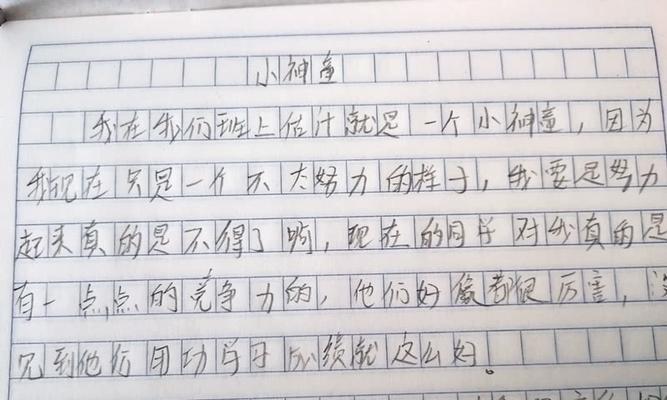 小神童
我在我们班上估计就是一个小神童，因为
我现在只是一个不太努力的样子，我要是努力
起来真的是不得了啊，现在的同学对我真的是
有一点点的竞争力的，他们好像都很厉害，没
见到他们用功学习成绩就这么好。